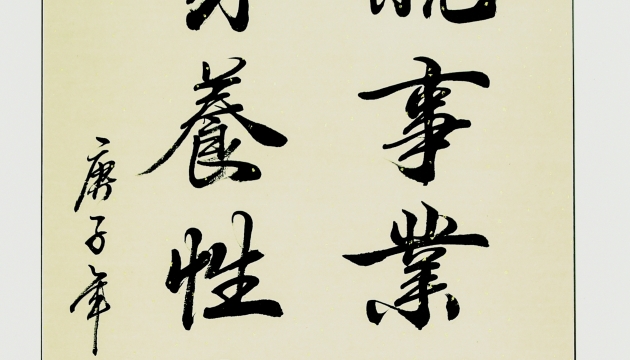 事業
養性
庚子年